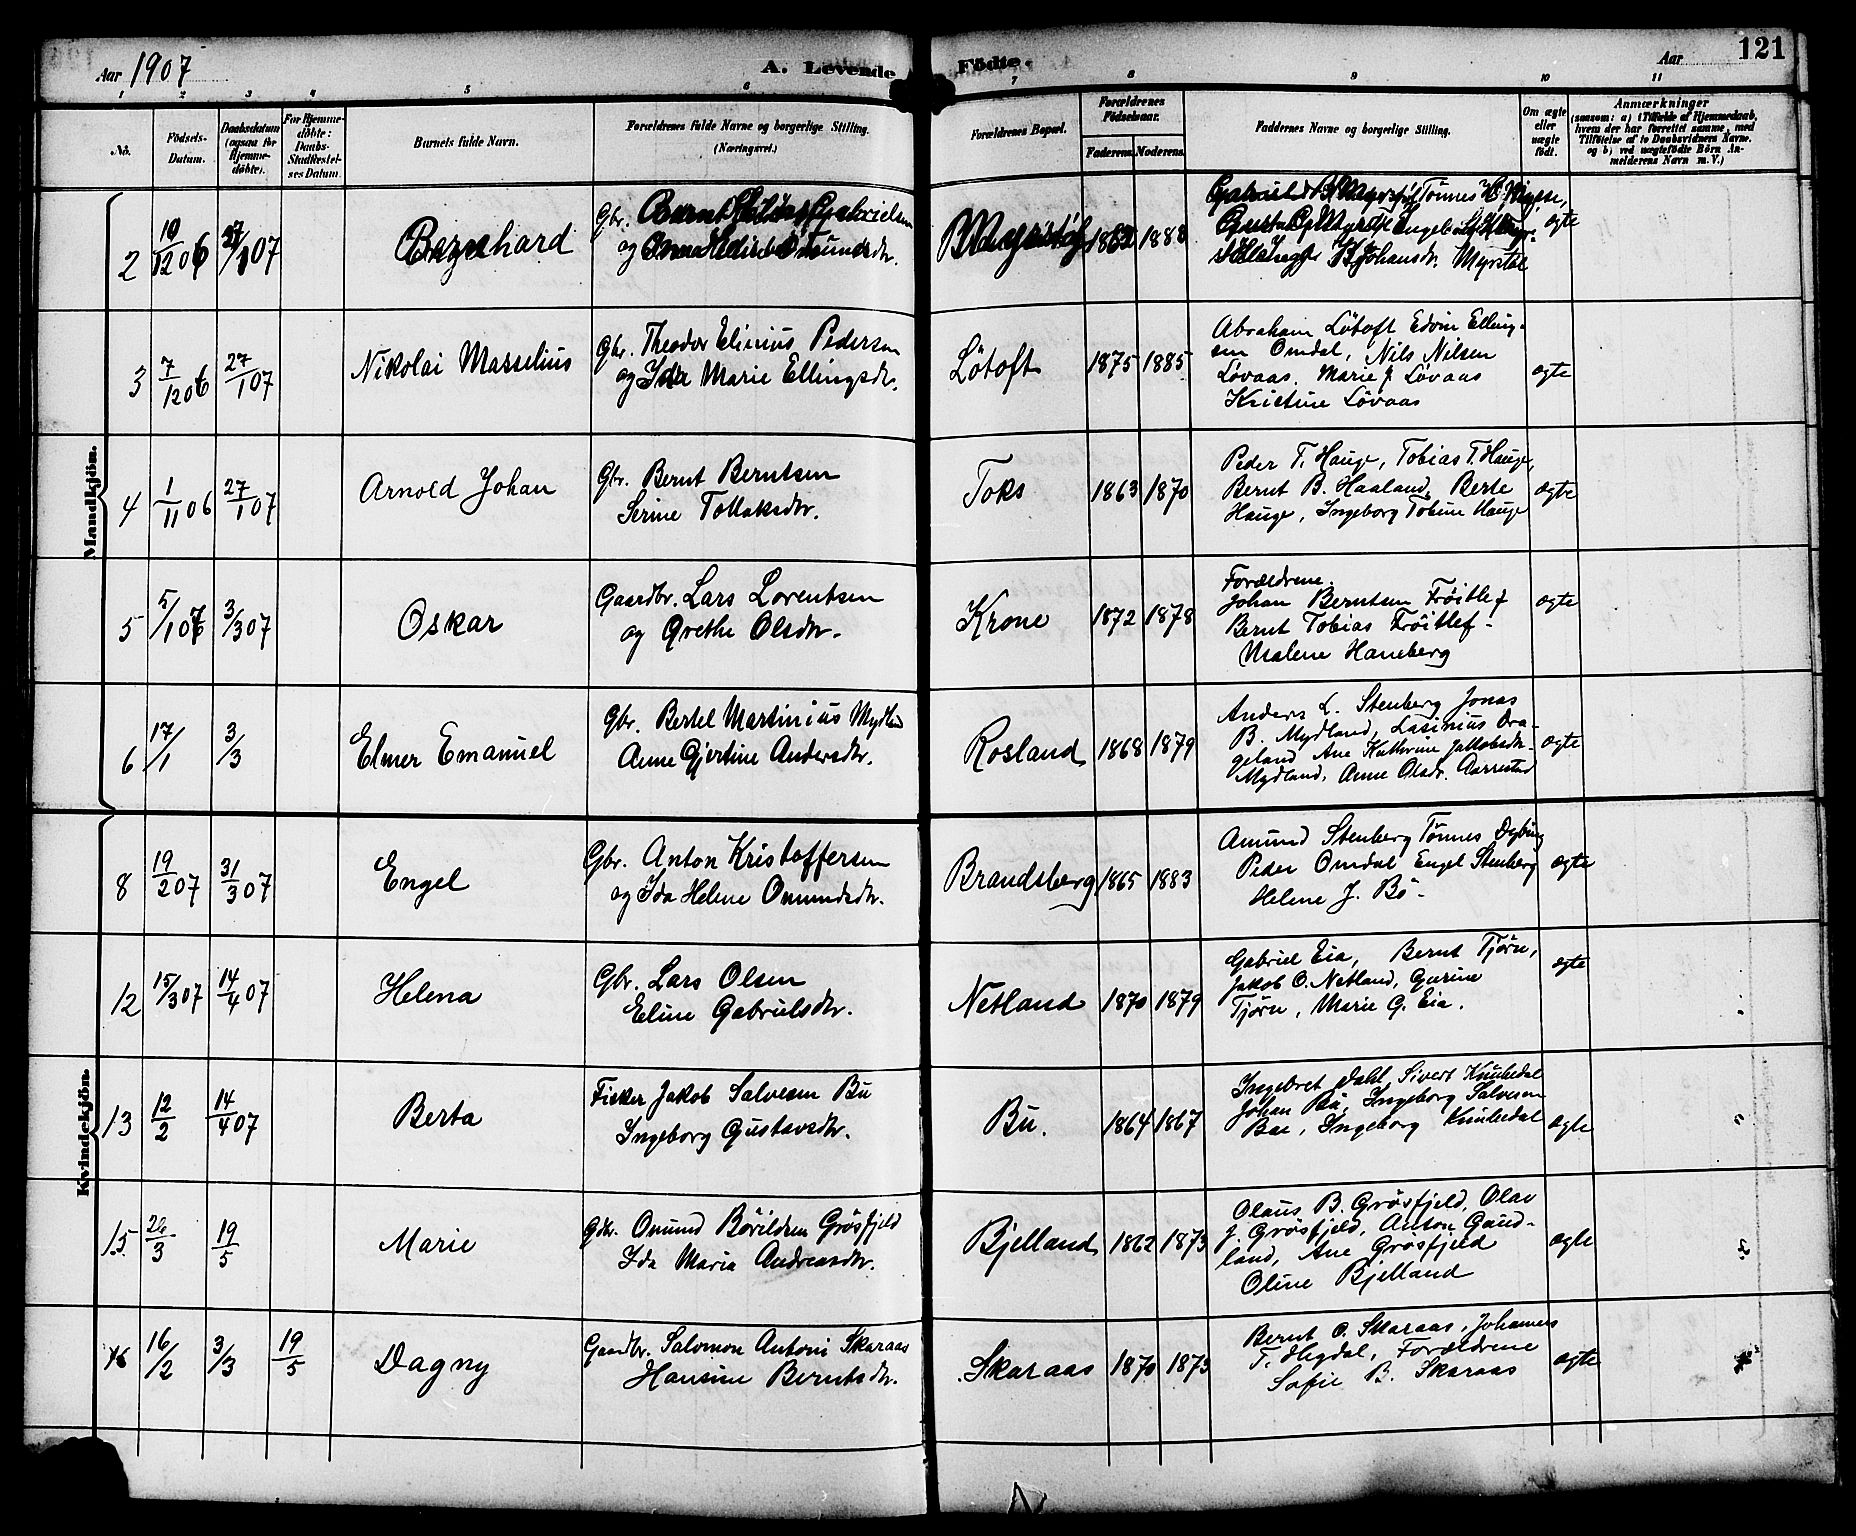 Aar 1907
A. Levende Fødte.
Aar
121
1 2 3 4 5 6 7 8 9 10 11
No.
Fødsels-
Datum.
Daabsdatum
(ogsaa for
Hjemme-
døbte).
For Hjemme-
døbte:
Daabs-
Stadfæstel-
ses Datum.
Barnets fulde Navn.
Forældrenes fulde Navne og borgerlige Stilling.
(Næringsvei.)
Forældrenes Bopæl.
Forældrenes
Fødselsaar.
Faderens. Moderens.
Faddernes Navne og borgerlige Stilling.
Om ægte
eller
uægte
født.
Anmærkninger
(saasom: a) i Tilfælde af Hjemmedaab,
hvem der har forrettet samme, med
Tilføielse af to Daabsvidners Navne.
og b) ved uægtefødte Børn An-
melderens Navn m. V.)
Mandkjön.
2 10/12 06 27/1 07
Bernhard
Gbr. Bernt Gabrielsen
og Omundsdtr.
1888
Tønnes
Myrstøl
ægte
3 7/12 06 27/1 07
Nikolai Masselius
Gbr. Theodor Elinius Pedersen
og Ida Marie Ellingsdtr.
Løtoft
1875 1885
Abraham Løtoft Edvin Elling-
sen Omdal, Nils Nilsen
Løvaas. Marie J. Løvaas
Kristine Løvaas
ægte
4 1/11 06 27/1 07
Arnold Johan
Gbr. Bernt Berntsen
Serine Tollaksdtr.
Toks
1863 1870
Peder T. Hauge, Tobias T. Hauge,
Bernt B. Haaland, Berte
Hauge, Ingeborg Tobine Hauge
ægte
5 5/1 07 3/3 07
Oskar
Gaardbr. Lars Lorentsen
og Grethe Olsdtr.
Krone
1872 1878
Forældrene.
Johan Berntsen Frøitlef
Bernt Tobias Frøitlef-
Malene Haneberg
ægte
6 17/1 3/3
Elmer Emanuel
Gbr. Bertel Martinius Mydland
Anne Gjertine Andersdtr.
Rosland
1868 1879
Anders L. Stenberg Jonas
B. Mydland, Lasinius Dra-
geland Ane Kathrine Jakobsdtr-
Mydland, Anne Olsdr. Aarrestad
ægte
Kvindekjön.
8 19/2 07 31/3 07
Engel
Gbr. Anton Kristoffersen
og Ida Helene Omundsdtr.
Brandsberg
1865 1883
Amund Stenberg Tønnes Dybing
Peder Omdal Engel Stenberg
Helene J. Bö-
ægte
12 15/3 07 14/4 07
Helena
Gbr. Lars Olsen
Eline Gabrielsdtr.
Netland
1870 1879
Gabriel Eia, Bernt Tjørn,
Jakob O. Netland, Gurine
Tjørn, Marie G. Eia.
ægte
13 12/2 14/4 07
Berta
Fisker Jakob Salvesen Bu
Ingeborg Gustavsdtr.
Bu.
1864 1867
Ingebret Dahl, Sivert Knubedal
Johan Bu, Ingeborg Salvesen
Bae, Ingeborg Knubedal
ægte
15 26/3 19/5
Marie
Gdbr. Omund Børildsen Grøsfjeld
Ida Maria Andreasdtr.
Bjelland
1862 1873
Olaus B. Grøsfjeld, Olav
J. Grøsfjeld, Anton Gaud-
land, Ane Grøsfjeld
Oline Bjelland
ægte
16/2 3/3 19/5
Dagny
Gaardbr. Salomon Antoni Skaraas
Hansine Berntsdtr.
Skaraas
1870 1873
Bernt O. Skaraas, Johannes
T. Hegdal, Forældrene
Sofie B. Skaraas
ægte